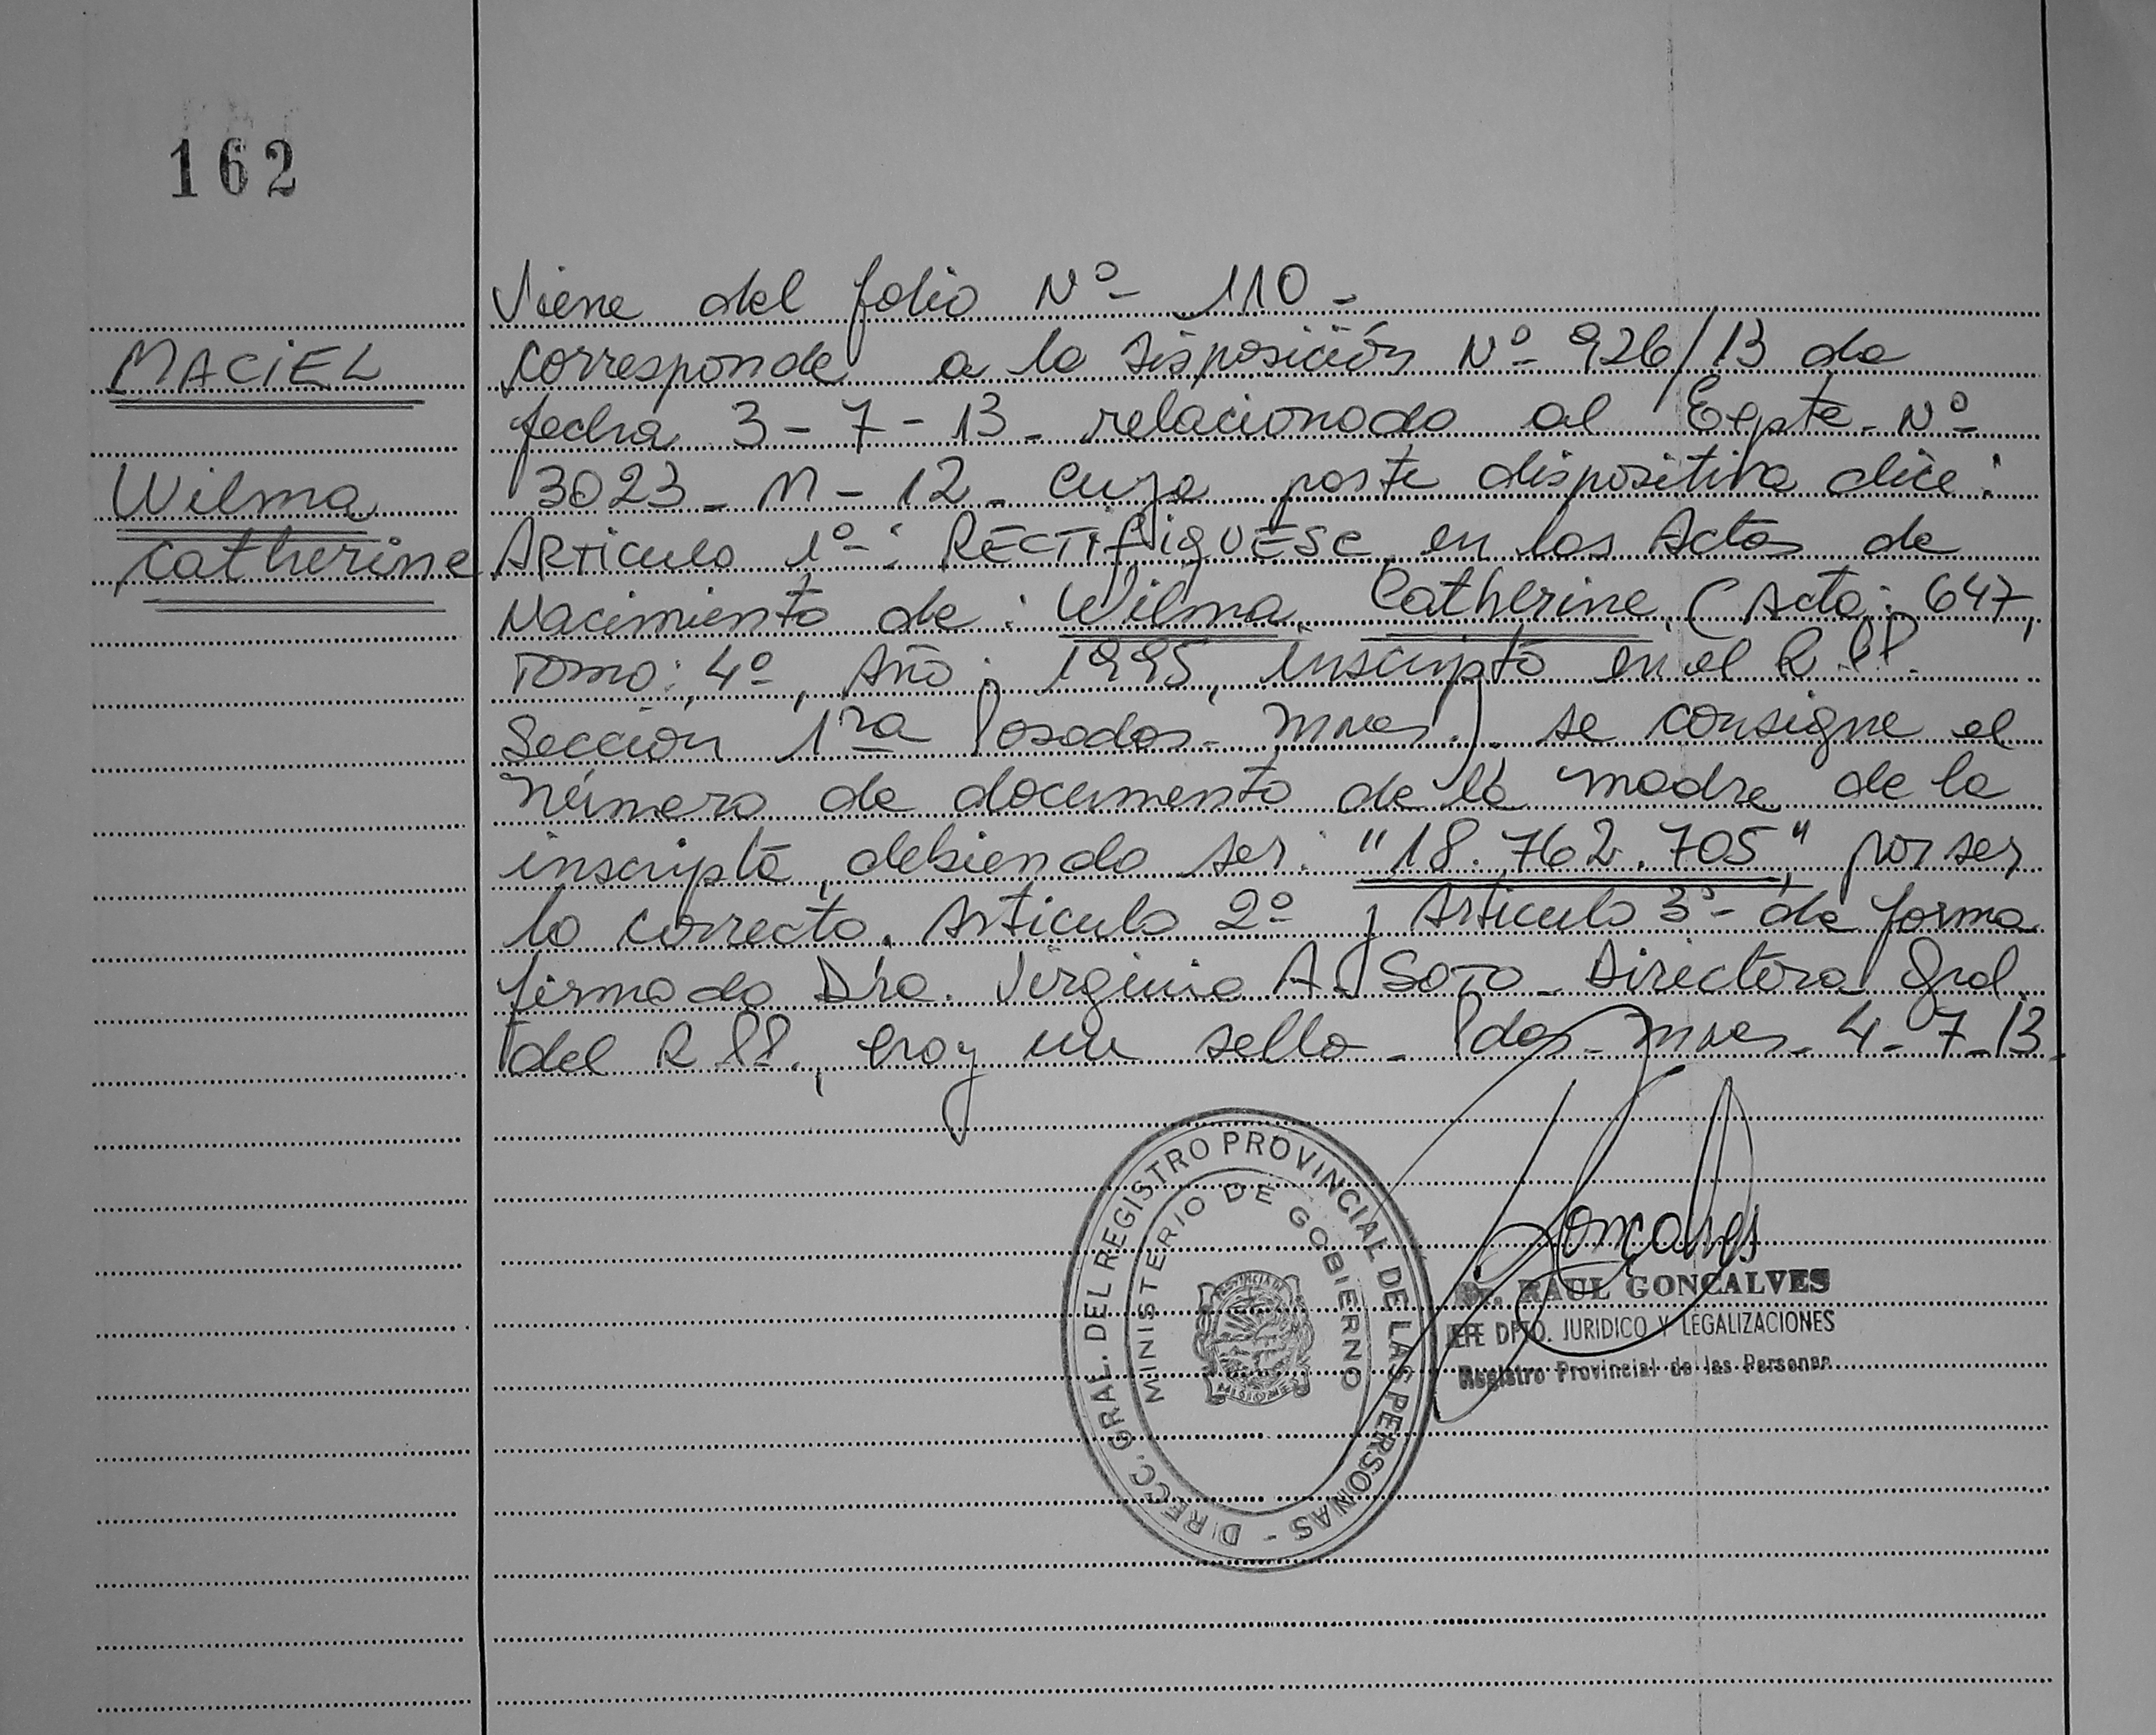 162
MACIEL
Wilma
Catherine
Viene del folio Nº 110-
corresponde a la Disposición Nº 926/13 de
fecha 3-7-13- relacionado al Expte. Nº
3023-M-12- cuya parte dispositiva dice:
Articulo 1º: RECTIFIQUESE en las Actas de
Nacimiento de: Wilma Catherine (Acta: 647,
Tomo: 4º, Año: 1995, inscripta en el R.P.P.
Sección 1ra Posadas- Mnes.). se consigne el
número de documento de la madre de la
inscripta, debiendo ser: "18.762.705", por ser
lo correcto. Articulo 2º y Articulo 3º- de forma
firmado Dra. Virginia A. Soto- Directora Gral.
del R.P.P., hay un sello- Pdas- Mnes- 4-7-13.
DIRECC. GRAL. DEL REGISTRO PROVINCIAL DE LAS PERSONAS -
MINISTERIO DE GOBIERNO
PROVINCIA DE
MISIONES
Goncalves
Dr. RAUL GONCALVES
JEFE DPTO. JURIDICO Y LEGALIZACIONES
Registro Provincial de las Personas